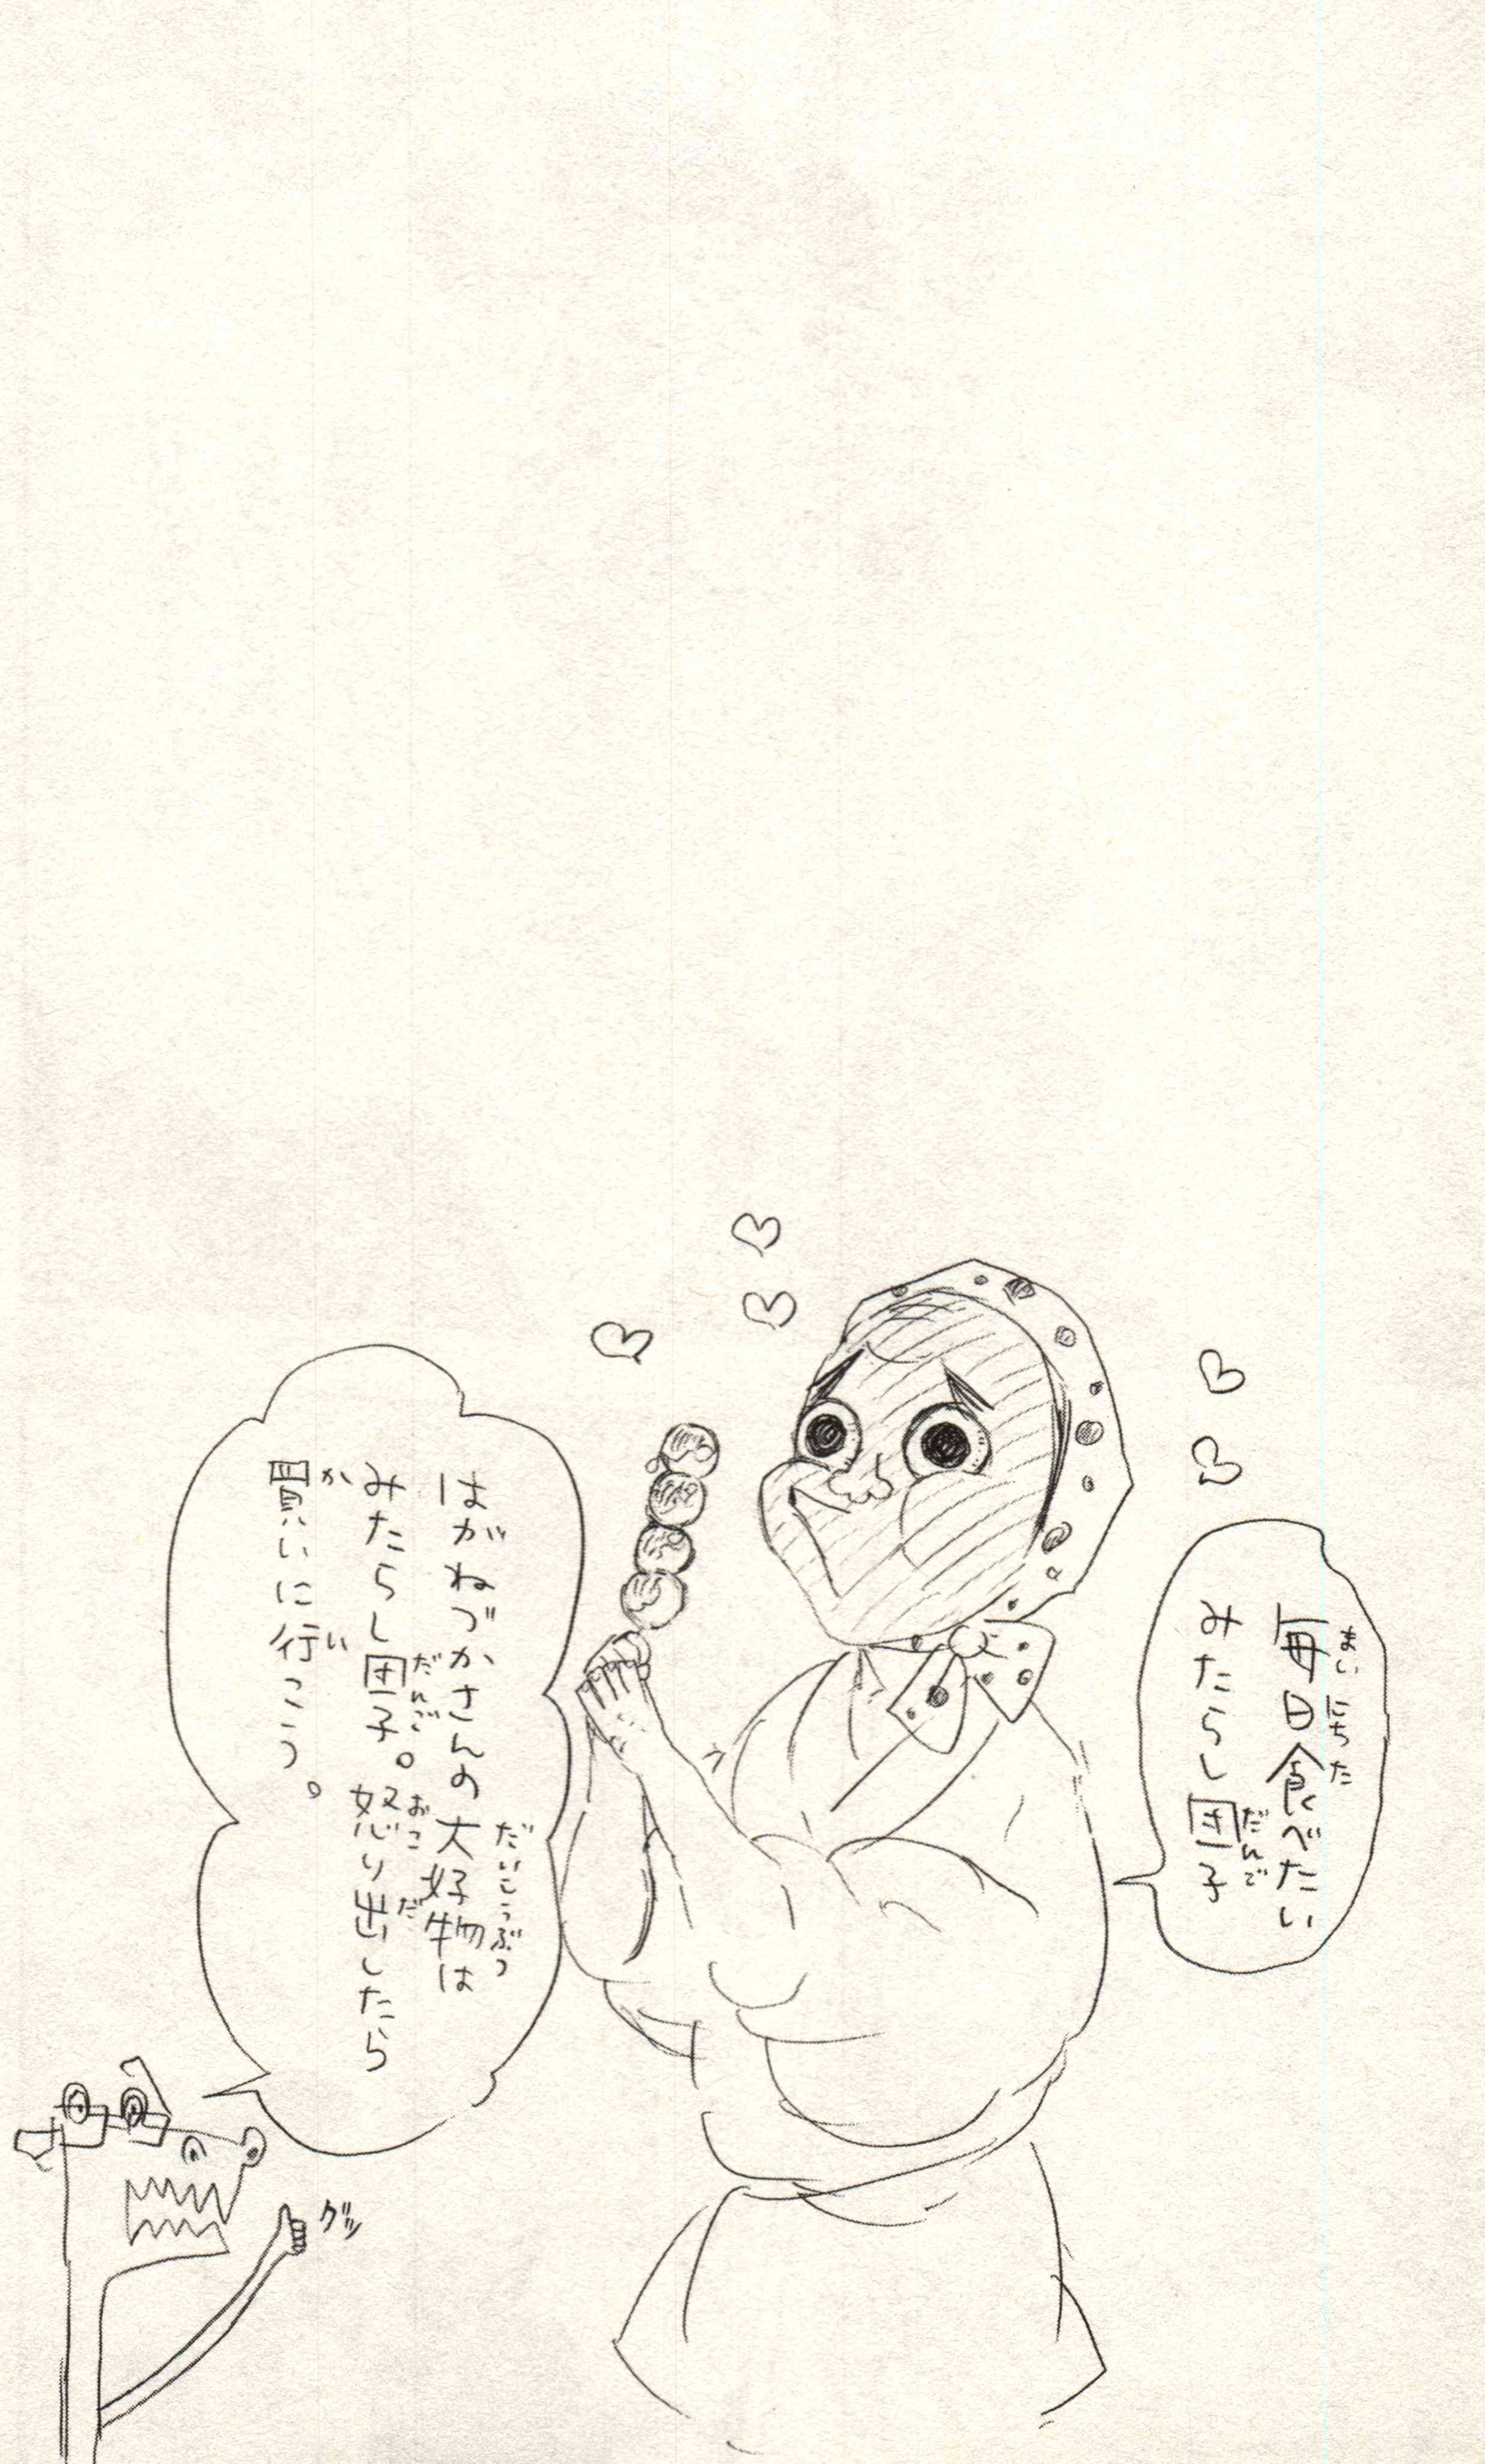 毎日食べたい
みたらし団子
はがねづかさんの大好物は
みたらし団子。怒り出したら
買いに行こう。
グッ